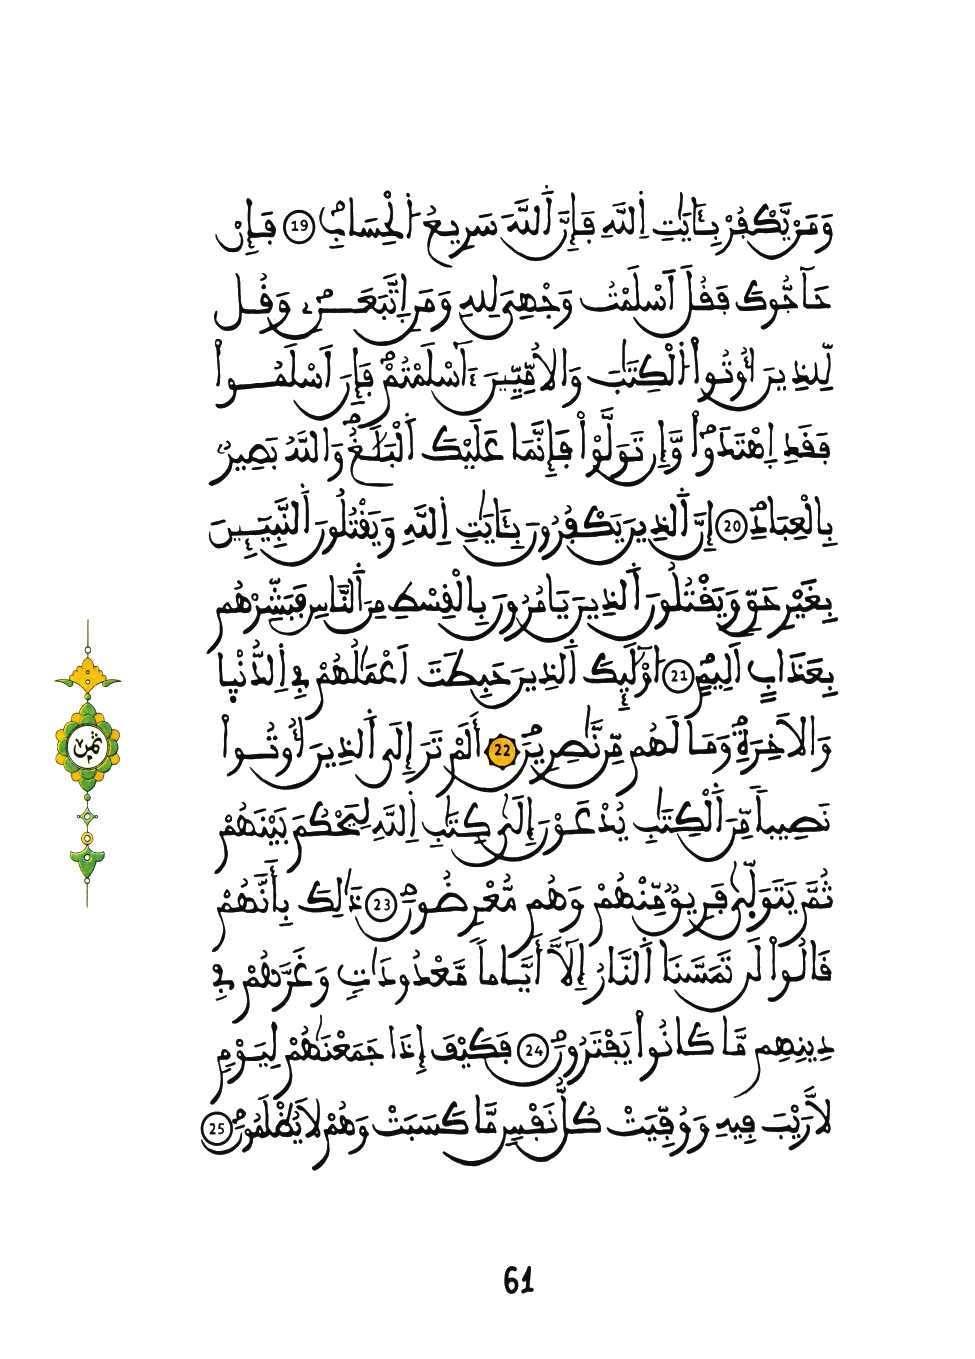 وَمَنْ يَّكْفُرْ بِـَٔايَٰتِ اِ۬للَّهِ فَإِنَّ اَ۬للَّهَ سَرِيعُ اُ۬لْحِسَابِۖ 19 فَإِنْ
حَآجُّوكَ فَقُلَ اَسْلَمْتُ وَجْهِيَ لِلهِ وَمَنِ اِتَّبَعَنِۦ وَقُل
لِّلذِينَ أُوتُواْ اُ۬لْكِتَٰبَ وَالُامِّيِّـۧنَ ءَآسْلَمْتُمْۖ فَإِنَ اَسْلَمُواْ
فَقَدِ اِهْتَدَواْۖ وَّإِن تَوَلَّوْاْ فَإِنَّمَا عَلَيْكَ اَ۬لْبَلَٰغُۖ وَاللَّهُ بَصِيرُۢ
بِالْعِبَادِۖ 20 إِنَّ اَ۬لذِينَ يَكْفُرُونَ بِـَٔايَٰتِ اِ۬للَّهِ وَيَقْتُلُونَ اَ۬لنَّبِيَـِٕۧينَ
بِغَيْرِ حَقّٖ وَيَقْتُلُونَ اَ۬لذِينَ يَامُرُونَ بِالْقِسْطِ مِنَ اَ۬لنَّاسِ فَبَشِّرْهُم
بِعَذَابٍ اَلِيمٍۖ 21 ا۟وْلَٰٓئِكَ اَ۬لذِينَ حَبِطَتَ اَعْمَٰلُهُمْ فِے اِ۬لدُّنْي۪ا
وَالَاخِرَةِۖ وَمَا لَهُم مِّن نَّٰصِرِينَۖ 22 أَلَمْ تَرَ إِلَى اَ۬لذِينَ أُوتُواْ
نَصِيباٗ مِّنَ اَ۬لْكِتَٰبِ يُدْعَوْنَ إِلَىٰ كِتَٰبِ اِ۬للَّهِ لِيَحْكُمَ بَيْنَهُمْ
ثُمَّ يَتَوَلّ۪يٰ فَرِيقٞ مِّنْهُمْ وَهُم مُّعْرِضُونَۖ 23 ذَٰلِكَ بِأَنَّهُمْ
قَالُواْ لَن تَمَسَّنَا اَ۬لنَّارُ إِلَّآ أَيَّاماٗ مَّعْدُودَٰتٖ وَغَرَّهُمْ فِے
دِينِهِم مَّا كَانُواْ يَفْتَرُونَۖ 24 فَكَيْفَ إِذَا جَمَعْنَٰهُمْ لِيَوْمٖ
لَّا رَيْبَ فِيهِ وَوُفِّيَتْ كُلُّ نَفْسٖ مَّا كَسَبَتْ وَهُمْ لَا يُظْلَمُونَۖ 25
ثمن
61